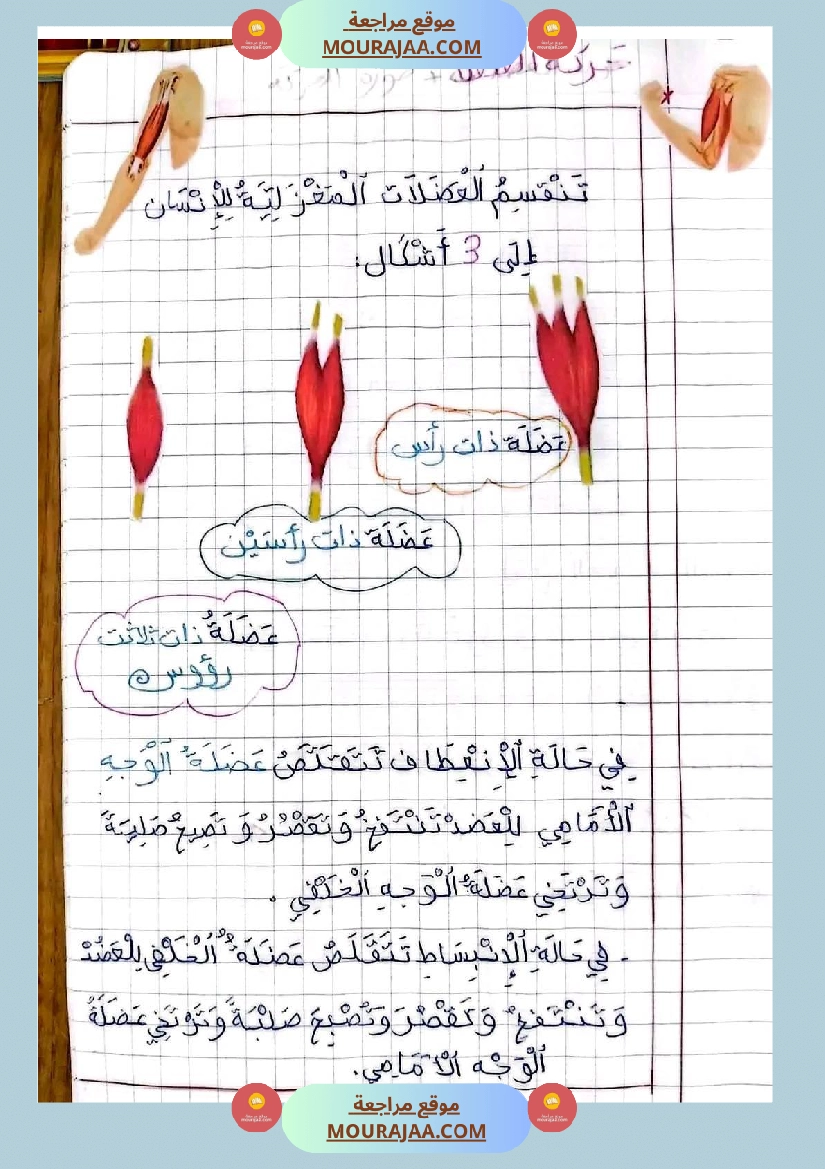 موقع مراجعة
MOURAJAA.COM
تَنْقَسِمُ الْعَضَلَات الْمَغْزَلِيَّةُ لِلْإِنْسَان
إِلَى 3 أَشْكَال:
عَضَلَة ذات رأس
عَضَلَة ذات رأسَيْن
عَضَلَةُ ذات ثلاثت
رؤوس
فِي حَالَةِ الْإِنْعِطَاف تَتَقَلَّصُ عَضَلَةُ الْوَجهِ
الْأَمَامِي لِلْعَضد تَنْتَفِخُ وَتَقْصُرُ وَ تَصبِحُ صَلبَةً
وَتَرْتَخِي عَضَلَةُ الْوَجهِ الْخَلْفِي .
- فِي حَالَةِ الْإِنْبِسَاطِ تَتَقَلَصُ عَضَلَةُ الْخَلْفِي لِلْعَضُدْ
وَتَنْتَفخُ وَتَقْصُرَ وَتُصْبِحَ صَلْبَةً وَتَرْتَخِي عَضَلَةُ
الْوَجْه الْأمَامِي.
موقع مراجعة
MOURAJAA.COM